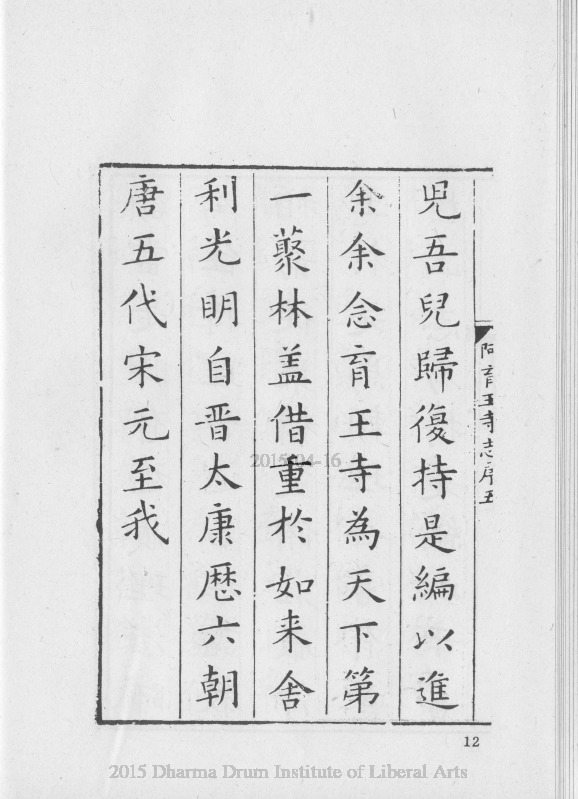 阿育王寺志序五
児吾兒歸復持是編以進
余余念育王寺為天下第
一藂林盖借重於如来舍
利光明自晋太康歴六朝
唐五代宋元至我
12
2015-04-16
2015 Dharma Drum Institute of Liberal Arts